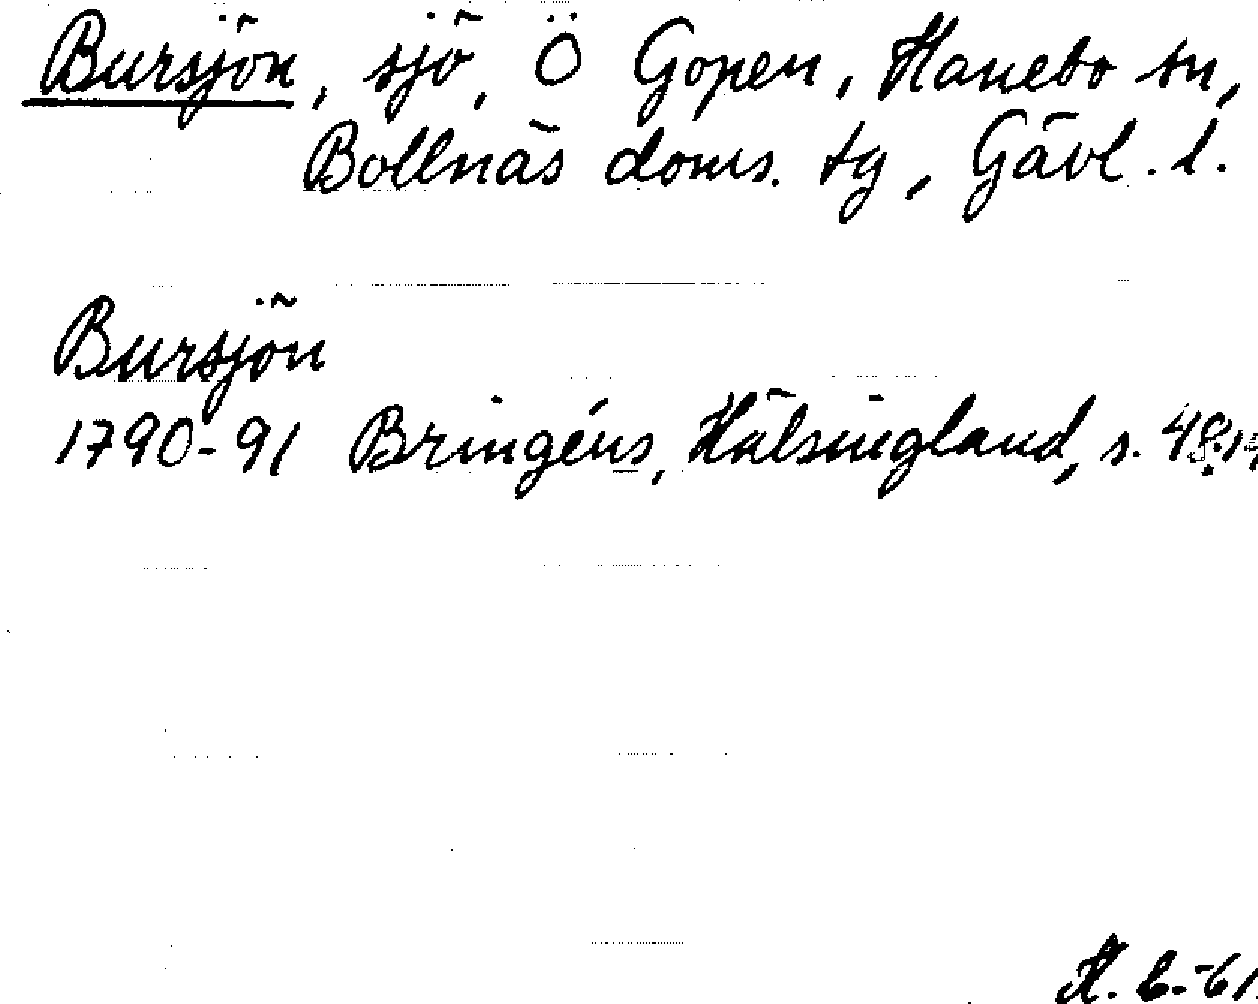 Bursjön, sjö, Ö Gopen, Hanebo sn,
Bollnäs doms. tg, Gävl. l.
Bursjön
1790-91 Bringéus, Hälsingland, s.